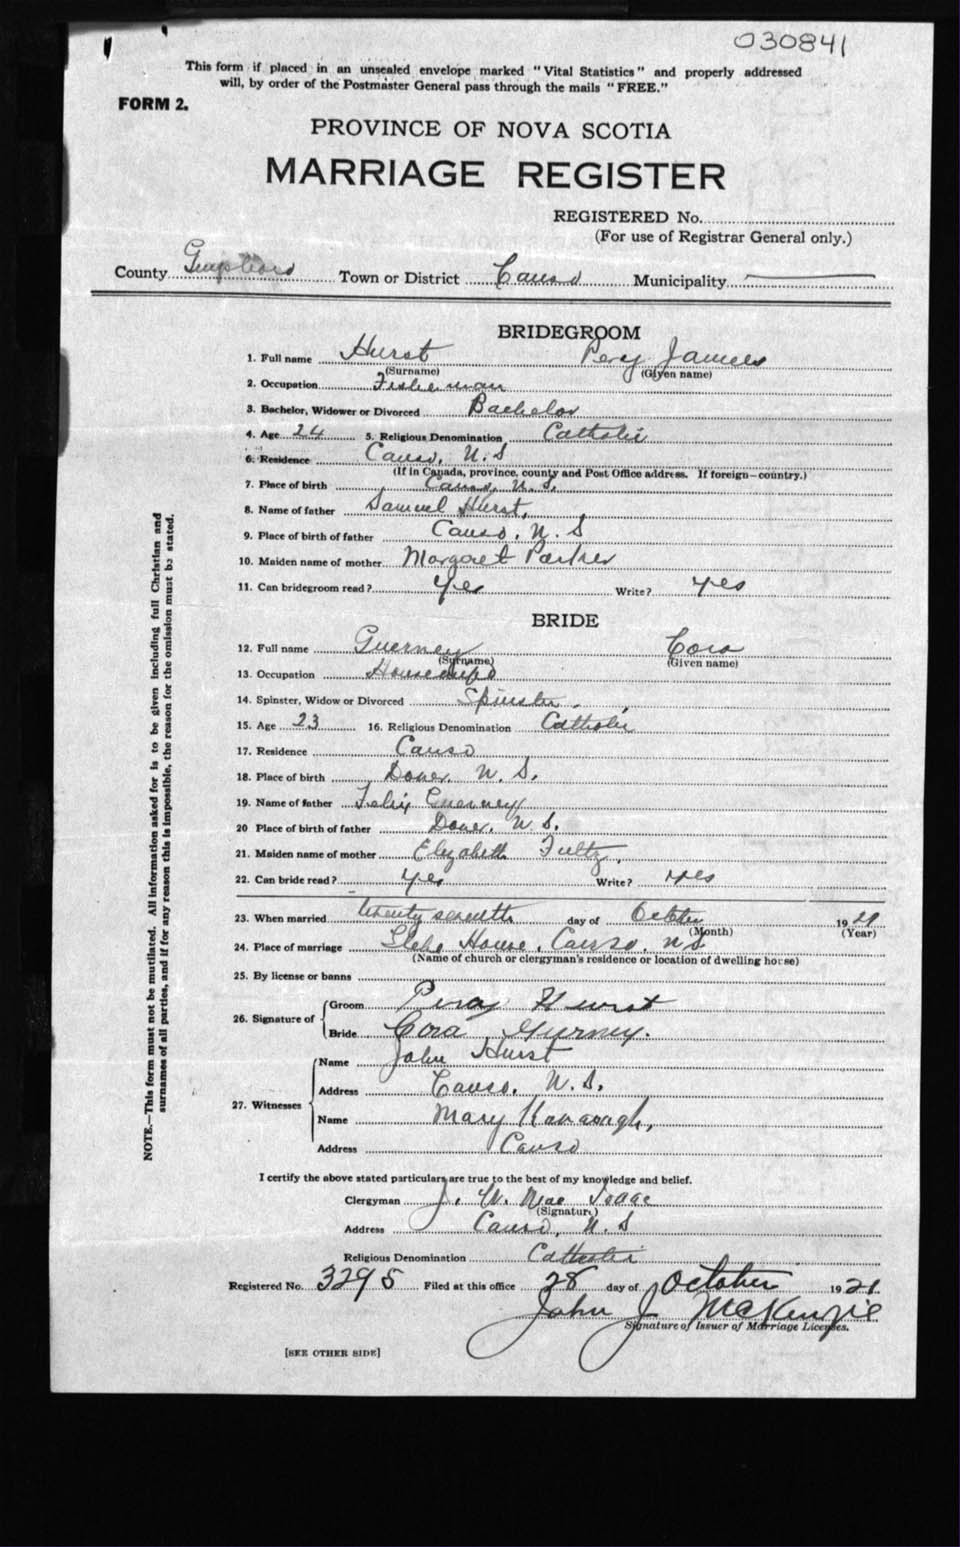 030841
This form if placed in an unsealed envelope marked "Vital Statistics" and properly addressed
will, by order of the Postmaster General pass through the mails "FREE."
FORM 2.
PROVINCE OF NOVA SCOTIA
MARRIAGE REGISTER
REGISTERED No.
(For use of Registrar General only.)
County Town or District Canso Municipality
BRIDEGROOM
1. Full name Hurst Percy James
(Surname) (Given name)
2. Occupation Fisherman
3. Bachelor, Widower or Divorced Bachelor
4. Age 24 5. Religious Denomination Catholic
6. Residence Canso, N.S
(If in Canada, province, county and Post Office address. If foreign—country.)
7. Place of birth Canso, N.S.
8. Name of father Samuel Hurst,
9. Place of birth of father Canso, N.S
10. Maiden name of mother Margaret Parker
11. Can bridegroom read? Yes Write? Yes
BRIDE
12. Full name Guerney Cora
(Surname) (Given name)
13. Occupation Housewife
14. Spinster, Widow or Divorced Spinster.
15. Age 23 16. Religious Denomination Catholic
17. Residence Canso
18. Place of birth Dover, N.S.
19. Name of father Felix Guerney
20 Place of birth of father Dover, N.S.
21. Maiden name of mother Elizabeth Fultz,
22. Can bride read? Yes Write? Yes
23. When married twenty seventh day of October 1921
(Month) (Year)
24. Place of marriage Glebe House, Canso, N.S
(Name of church or clergyman's residence or location of dwelling house)
25. By license or banns
26. Signature of
Groom Percy Hurst
Bride Cora Gurney.
27. Witnesses
Name John Hurst
Address Canso, N.S.
Name Mary Kavanagh,
Address Canso
I certify the above stated particulars are true to the best of my knowledge and belief.
Clergyman J. W. Mac Isaac
(Signature)
Address Canso, N.S
Religious Denomination Catholic
Registered No. 3295 Filed at this office 28 day of October 1921
John J McKenzie
Signature of Issuer of Marriage Licenses.
[SEE OTHER SIDE]
NOTE.—This form must not be mutilated. All information asked for is to be given including full Christian and
surnames of all parties, and if for any reason this is impossible, the reason for the omission must be stated.